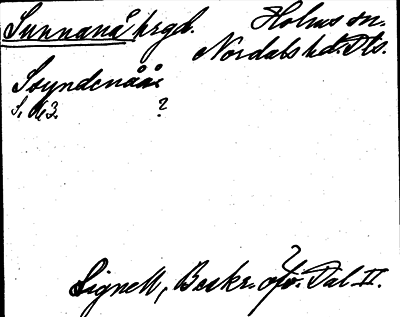 Sunnanå hrgd. Holms sn.
Nordals hd. Dls.
Syndenåå
S. 63. ?
Lignell, Beskr. öfv. Dal II.